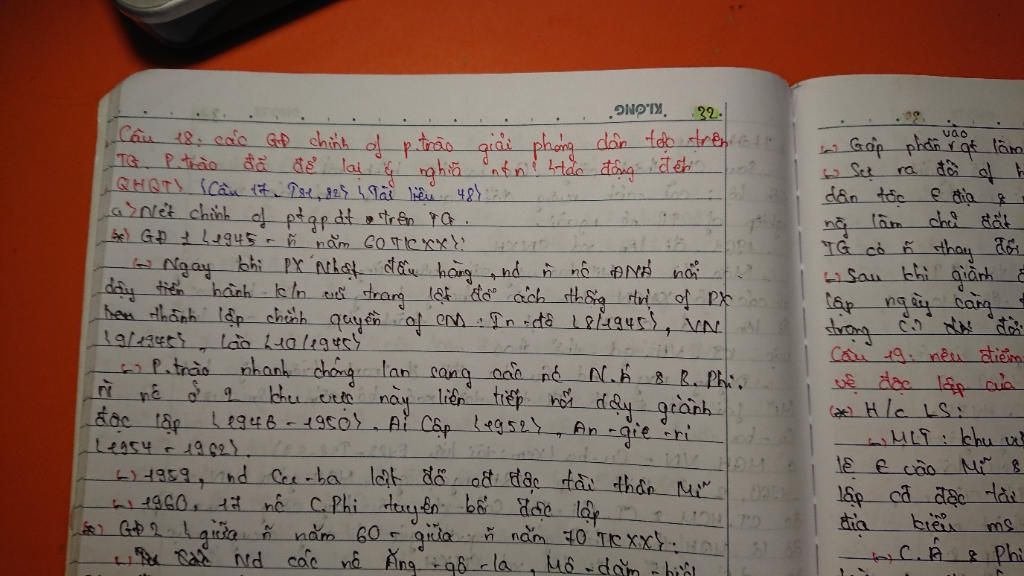 KLONG 32
Câu 18: các GĐ chính of p.trào giải phóng dân tộc trên
TG. P.trào đã để lại ý nghĩa ntn? tác động đến
QHQT? (Câu 17. T81,82) (Tài liệu 48)
a) Nét chính of ptgpdt trên TG.
(*) GĐ 1 (1945 - ñ năm 60 TK XX):
Ngay khi PX Nhật đầu hàng, nd ñ nc ĐNÁ nổi
dậy tiến hành k/n vũ trang lật đổ ách thống trị of PX
thành lập chính quyền of CM: In-đô (8/1945), VN
(9/1945), Lào (10/1945)
P.trào nhanh chóng lan sang các nc N.Á & B.Phi.
Ñ nc ở 2 khu vực này liên tiếp nổi dậy giành
độc lập (1946 - 1950). Ai Cập (1952), An-giê-ri
(1954 - 1962).
1959, nd Cu-ba lật đổ cđ độc tài thân Mĩ
1960, 17 nc C.Phi tuyên bố độc lập
(*) GĐ 2 (giữa ñ năm 60 - giữa ñ năm 70 TK XX):
nd các nc Ăng-gô-la, Mô-dăm-bích
Góp phần vào qt làm
Sự ra đời of
dân tộc
làm chủ đất
TG có ñ thay đổi
Sau khi giành
lập ngày càng
trọng
Câu 19: nêu điểm
về độc lập của
(*) H/c LS:
MLT: khu vự
lệ vào Mĩ &
lập cđ độc tài
địa kiểu ms
C.Á & Phi